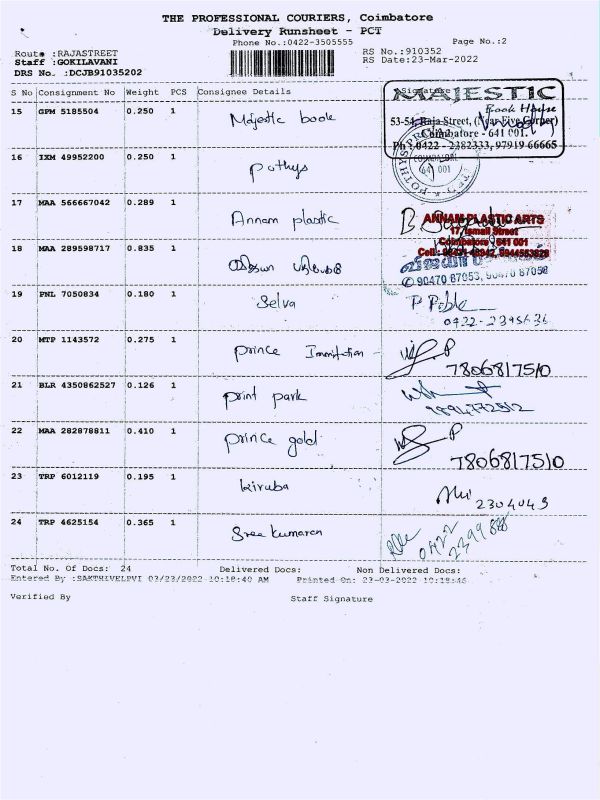 THE PROFESSIONAL COURIERS, Coimbatore
Delivery Runsheet - PCT
Phone No.:0422-3505555
Page No.:2
Route :RAJASTREET
RS No.:910352
Staff :GOKILAVANI
RS Date:23-Mar-2022
DRS No. :DCJB91035202
S No Consignment No Weight PCS Consignee Details Signature
15 GPM 5185504 0.250 1 Majestic book
MAJESTIC
Book House
53-54, Raja Street, (Near Five Corner)
Coimbatore - 641 001.
Ph : 0422 - 2382333, 97919 66665
16 IXM 49952200 0.250 1 Pothys
COIMBATORE
641 001
17 MAA 566667042 0.289 1 Annam plastic
ANNAM PLASTIC ARTS
17, Ismail Street
Coimbatore - 641 001
18 MAA 289598717 0.835 1
19 PNL 7050834 0.180 1 Selva
0422-2395636
20 MTP 1143572 0.275 1 prince Immitation
7806817510
21 BLR 4350862527 0.126 1 print park
9894772512
22 MAA 282878811 0.410 1 prince gold
7806817510
23 TRP 6012119 0.195 1 kiruba
2304049
24 TRP 4625154 0.365 1 Sree kumaran
0422
Total No. Of Docs: 24 Delivered Docs: Non Delivered Docs:
Entered By :SAKTHIVELPVI 03/23/2022 10:18:40 AM Printed On: 23-03-2022 10:18:46
Verified By Staff Signature